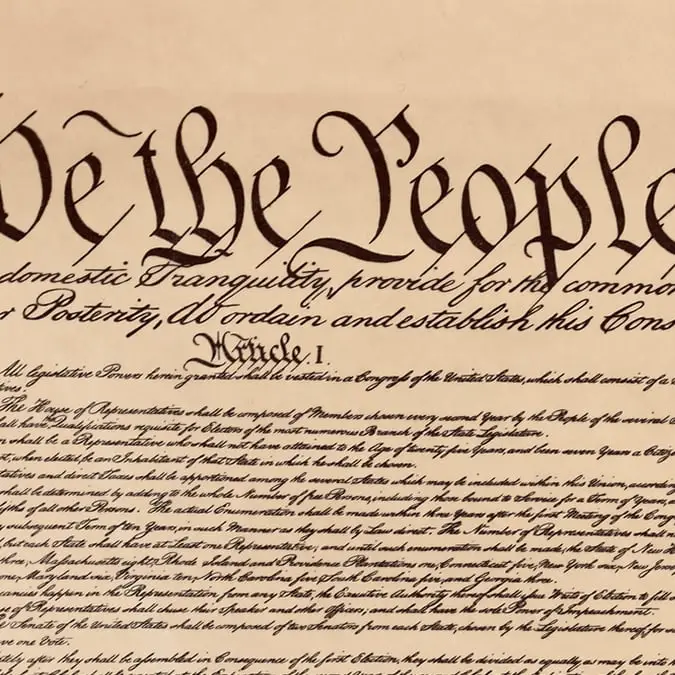 We the People
domestic Tranquility, provide for the common
r Posterity, do ordain and establish this Cons
Article. I.
All legislative Powers herein granted shall be vested in a Congress of the United States, which shall consist of a
tives.
The House of Representatives shall be composed of Members chosen every second Year by the People of the several
all have Qualifications requisite for Electors of the most numerous Branch of the State Legislature.
n shall be a Representative who shall not have attained to the Age of twenty five Years, and been seven Years a Citize
ot, when elected, be an Inhabitant of that State in which he shall be chosen.
tatives and direct Taxes shall be apportioned among the several States which may be included within this Union, according
shall be determined by adding to the whole Number of free Persons, including those bound to Service for a Term of Years, a
fths of all other Persons. The actual Enumeration shall be made within three Years after the first Meeting of the Cong
y subsequent Term of ten Years, in such Manner as they shall by Law direct. The Number of Representatives shall n
, but each State shall have at Least one Representative; and until such enumeration shall be made, the State of New H
three, Massachusetts eight, Rhode Island and Providence Plantations one, Connecticut five, New York six, New Jersey
one, Maryland six, Virginia ten, North Carolina five, South Carolina five, and Georgia three.
cancies happen in the Representation from any State, the Executive Authority thereof shall issue Writs of Election to fill
se of Representatives shall chuse their Speaker and other Officers; and shall have the sole Power of Impeachment.
e Senate of the United States shall be composed of two Senators from each State, chosen by the Legislature thereof, for
ve one Vote.
tely after they shall be assembled in Consequence of the first Election, they shall be divided as equally as may be into